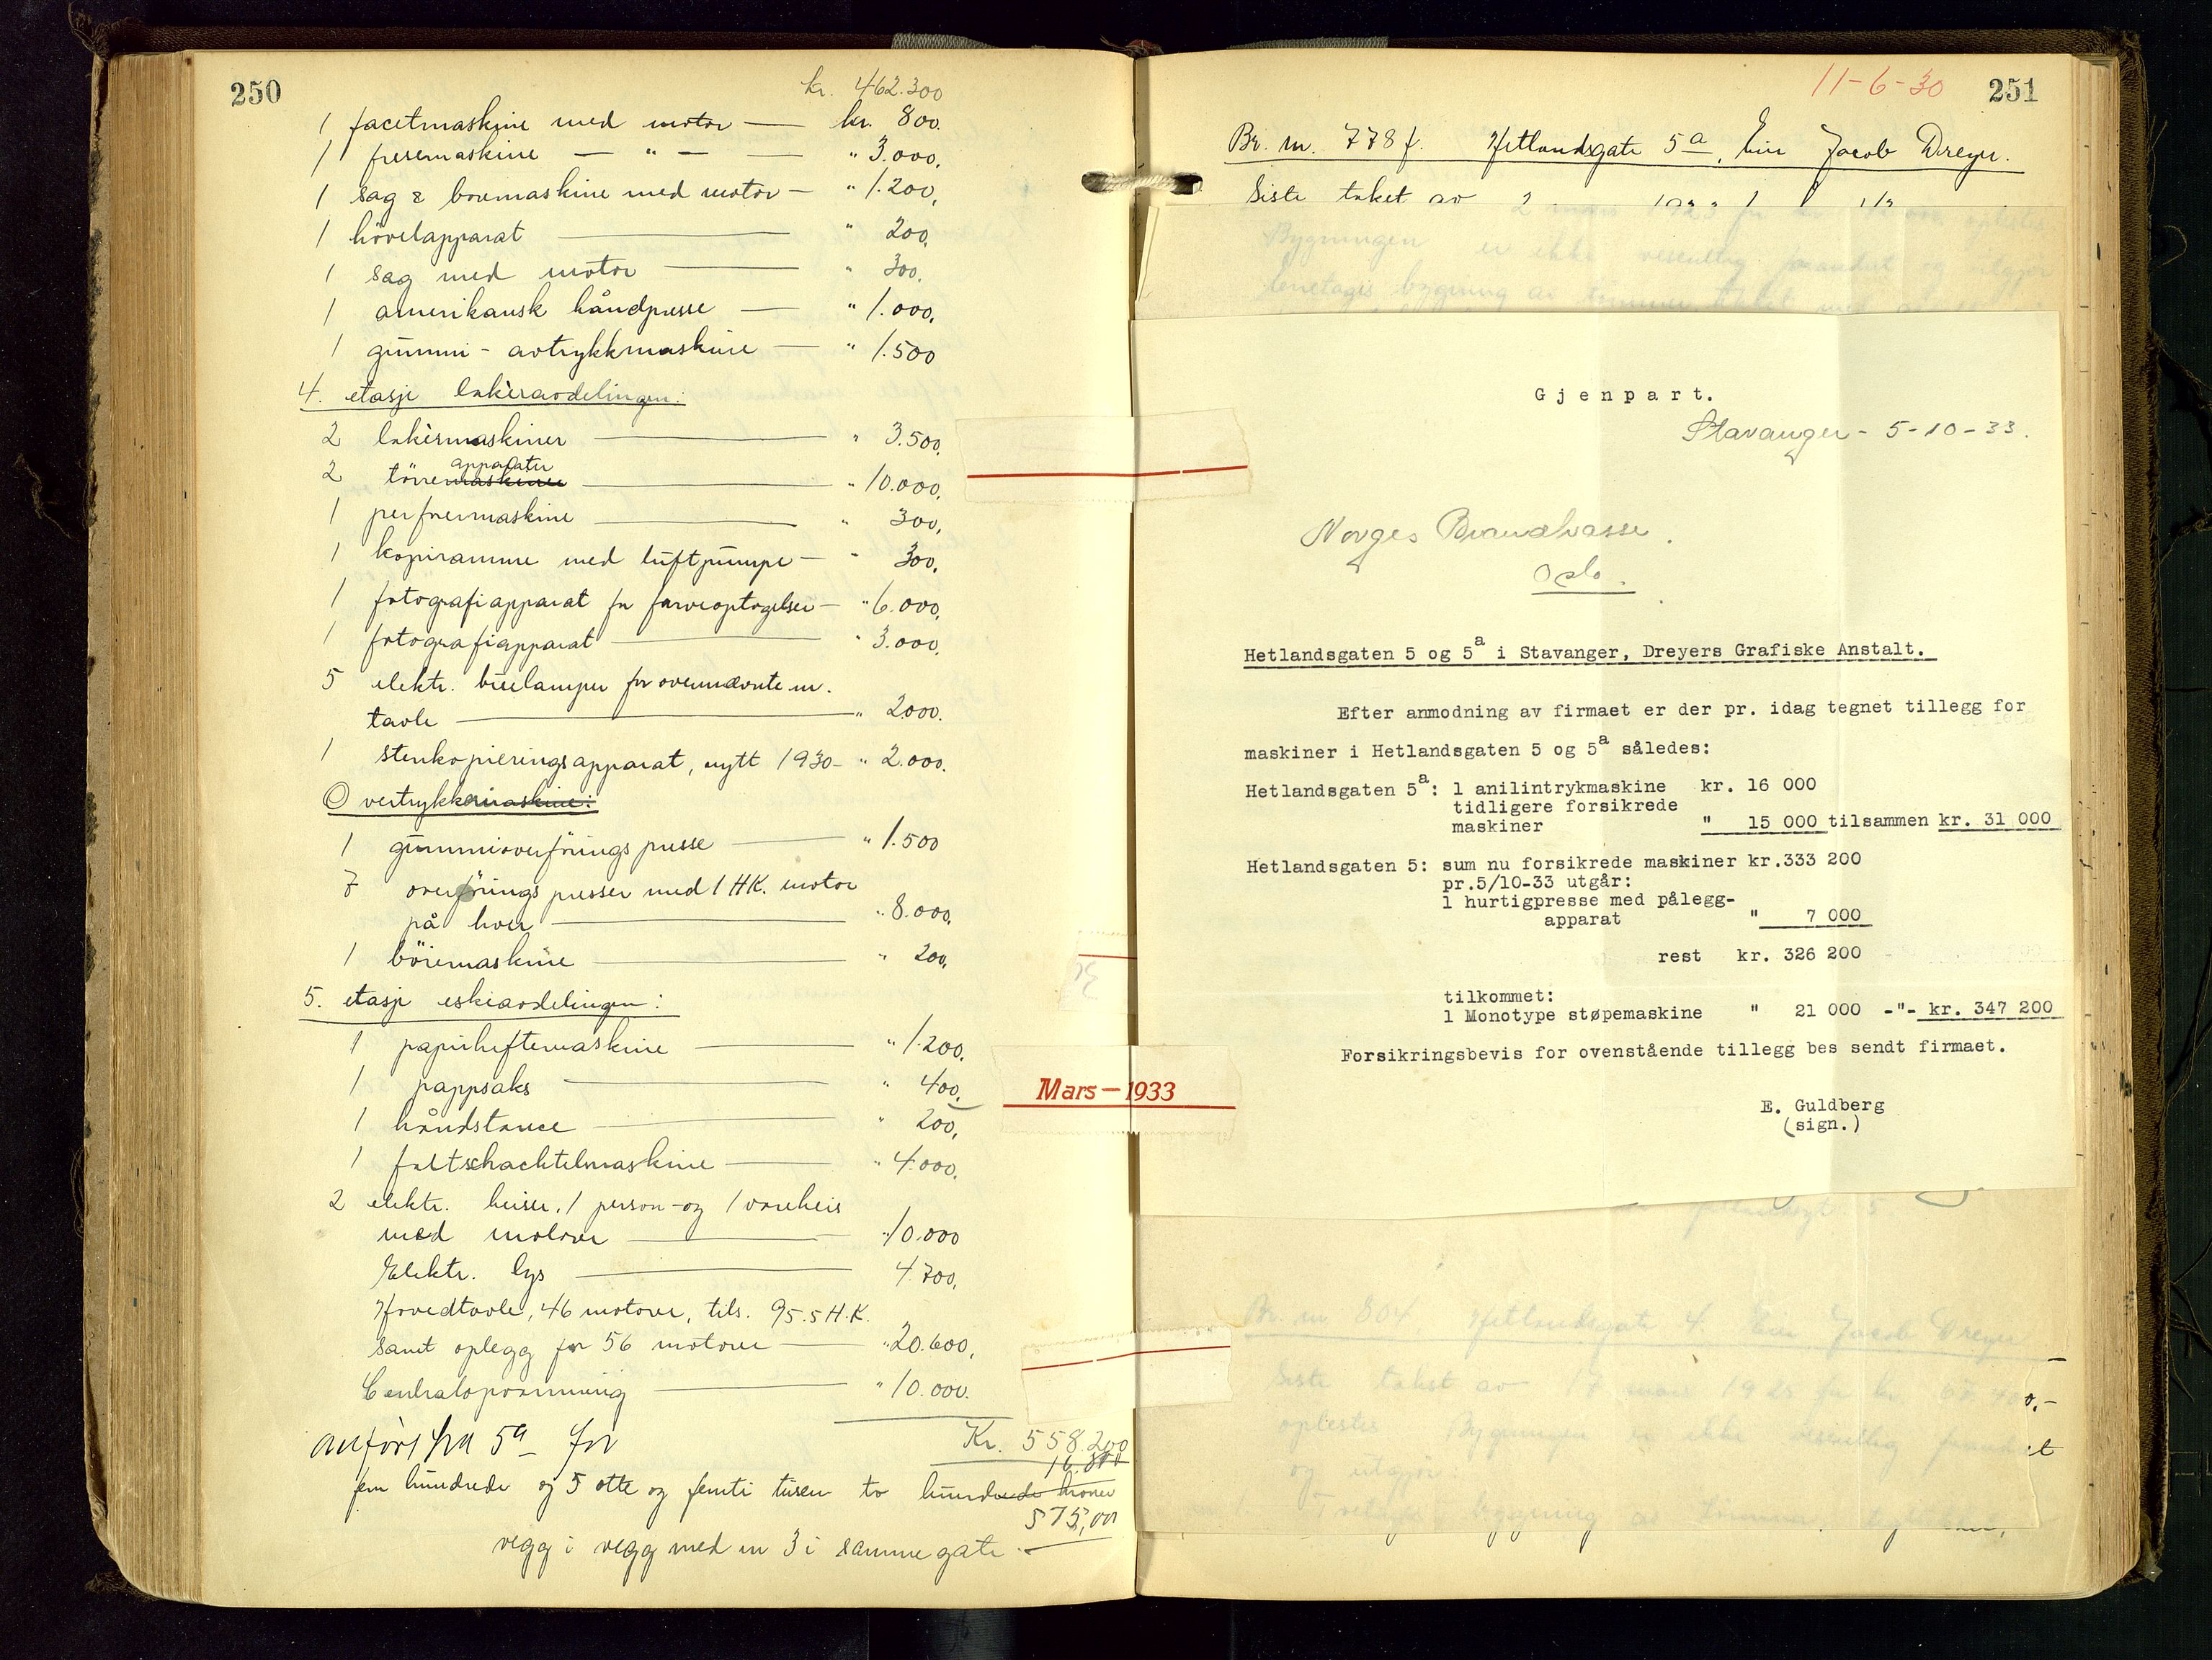 250
kr. 462.300
1 facetmaskine med motor — kr. 800.
1 fresemaskine — " — — " 3.000.
1 sag & boremaskine med motor — " 1.200.
1 hövelapparat — " 200.
1 sag med motor — " 300.
1 amerikansk håndpresse — " 1.000.
1 gummi-avtrykkmaskine — " 1.500
4. etasje lakèravdelingen:
2 lakèrmaskiner — " 3.500.
apparater
2 törremaskiner — " 10.000.
1 perforermaskine — " 300.
1 kopiramme med luftpumpe — " 300.
1 fotografiapparat for farveoptagelser — " 6.000.
1 fotografiapparat — " 3.000.
5 elektr. buelamper for ovennævnte m.
tavle — " 2000.
1 stenkopieringsapparat, nytt 1930 — " 2.000.
Overtrykkermaskine:
1 gummioverförings presse — " 1.500
7 overförings presser med 1 HK. motor
på hver — " 8.000.
1 böiemaskine — " 200.
5. etasje eskeavdelingen:
1 papirheftemaskine — " 1.200.
1 pappsaks — " 400.
1 håndstanse — " 200.
1 faltschachtelmaskine — " 4.000.
2 elektr. heiser, 1 person- og 1 vareheis
med motorer — " 10.000
Elektr. lys — 4.700.
Hovedtavle, 46 motorer, tils. 95.5 H.K.
samt oplegg for 56 motorer — " 20.600.
Centralopvarmning — " 10.000.
anført fra 5a for Kr. 558.200
16.800
fem hundrede og 5 otte og femti tusen to hundrede kroner
575,00
vegg i vegg med nr 3 i samme gate.
Mars-1933
11-6-30 251
Br. nr. 778 f. Hetlandsgate 5a, Eier Jacob Dreyer.
Siste takst av 2
Gjenpart.
Stavanger - 5-10-33.
Norges Brandkasse.
Oslo.
Hetlandsgaten 5 og 5a i Stavanger, Dreyers Grafiske Anstalt.
Efter anmodning av firmaet er der pr. idag tegnet tillegg for
maskiner i Hetlandsgaten 5 og 5a således:
Hetlandsgaten 5a: 1 anilintrykmaskine kr. 16 000
tidligere forsikrede
maskiner " 15 000 tilsammen kr. 31 000
Hetlandsgaten 5: sum nu forsikrede maskiner kr.333 200
pr.5/10-33 utgår:
1 hurtigpresse med pålegg-
apparat " 7 000
rest kr. 326 200
tilkommet:
1 Monotype støpemaskine " 21 000 -"- kr. 347 200
Forsikringsbevis for ovenstående tillegg bes sendt firmaet.
E. Guldberg
(sign.)
Br. nr. 804. Hetlandsgate 4. Eier Jacob Dreyer
Siste takst av 17 mars 1925 for kr.
oplestes. Bygningen er ikke vesentlig
og utgjör: